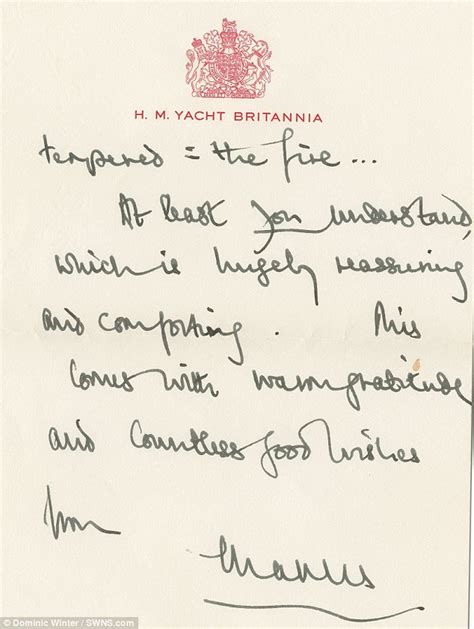 H. M. YACHT BRITANNIA
tempered = the fire ...
At least you understand,
which is hugely reassuring
and comforting. This
comes with warm gratitude
and countless good wishes
from
Charles
© Dominic Winter / SWNS.com